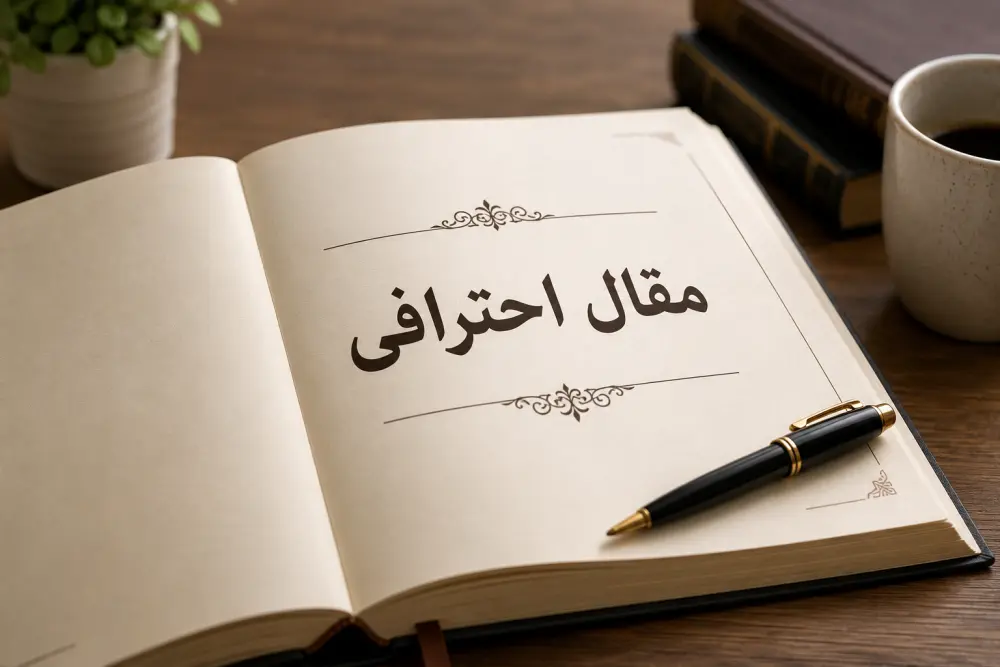 مقال احترافى